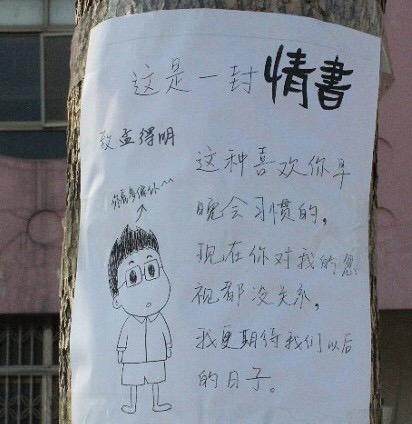 这是一封情書
致孟得明
你看多像你
这种喜欢你早
晚会习惯的,
现在你对我的忽
视都没关系,
我更期待我们以后
的日子。